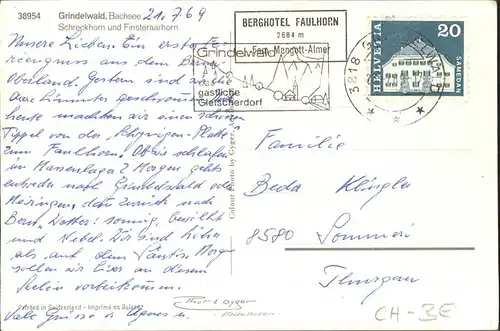 38954 Grindelwald, Bachsee 21.7.69
Schreckhorn und Finsteraarhorn
BERGHOTEL FAULHORN
2684 m
Fam. Mangott-Almer
Grindelwald
das
gastliche
Gletscherdorf
3818 G
HELVETIA
20
SAMEDAN
Unsere Lieben! Ein erster Fe-
riengruss aus dem Berner
Oberland. Gestern sind wir
heute machten wir einen schönen
Tippel von der Schynigen Platte
zum Faulhorn. Ob wir schlafen
im Massenlager? Morgen geht's
entweder nach Grindelwald oder
Meiringen, dann zurück nach
Bern. Wetter: sonnig, bewölkt
und Nebel. Wir sind höher
als auf dem Säntis. Morgen
sollen wir hier an diesem
Seelein vorbeikommen.
Viele Grüsse v. Agnes u.
Colour Photo by Gyger
Printed in Switzerland - Imprimé en Suisse
Photo E. Gyger
Adelboden
Familie
Beda Klingler
8580 Sommeri
Thurgau
CH-BE